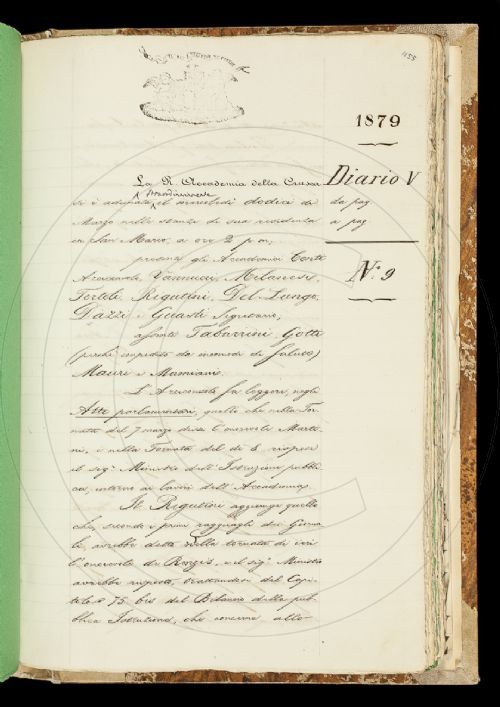 455
1879
Diario V
da pag
a pag
N.º 9
La R. Accademia della Crusca
si è adunata straordinariamente el mercoledì dodici di
Marzo nelle stanze di sua residenza
in San Marco, a ore 2 p. m.,
presenti gli Accademici Conti
Arciconsolo, Vannucci, Milanesi,
Tortoli, Rigutini, Del Lungo,
Dazzi e Guasti Segretario;
assenti Tabarrini, Gotti
(perchè impedito da incomodi di salute)
Mauri e Mamiani.
L'Arciconsolo fa leggere, negli
Atti parlamentari, quello che nella Tor-
nata del 7 marzo disse l'onorevole Marti-
ni, e nella Tornata del dì 8 rispose
il sig. Ministro dell'Istruzione pubbli-
ca, intorno ai lavori dell'Accademia.
Il Rigutini aggiunge quello
che, secondo i primi ragguagli dei Giorna-
li, avrebbe detto nella tornata di ieri
l'onorevole De Renzis, e il sig. Ministro
avrebbe risposto, trattandosi del Capi-
tolo 75 bis del Bilancio della pub-
blica Istruzione, che concerne alle